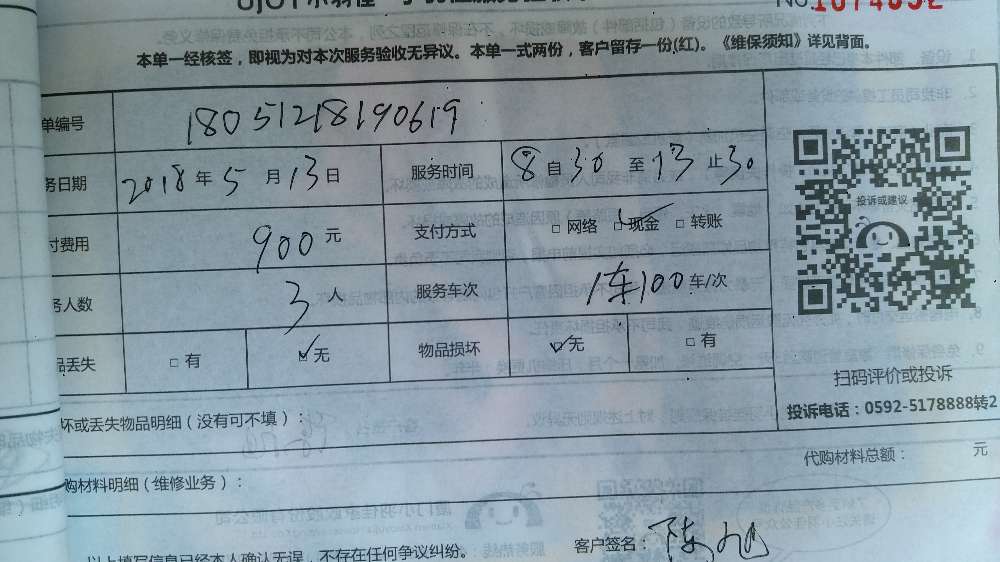 本单一经核签，即视为对本次服务验收无异议。本单一式两份，客户留存一份(红)。《维保须知》详见背面。
单编号 18051218190619
务日期 2018 年 5 月 13 日 服务时间 8 自 30 至 13 止 30
付费用 900 元 支付方式 □ 网络 ☑ 现金 □ 转账
务人数 3 人 服务车次 1车100 车/次
品丢失 □ 有 ☑ 无 物品损坏 ☑ 无 □ 有
投诉或建议
扫码评价或投诉
投诉电话：0592-5178888转2
坏或丢失物品明细（没有可不填）：
代购材料总额： 元
购材料明细（维修业务）：
以上填写信息已经本人确认无误，不存在任何争议纠纷。 客户签名：陈旭